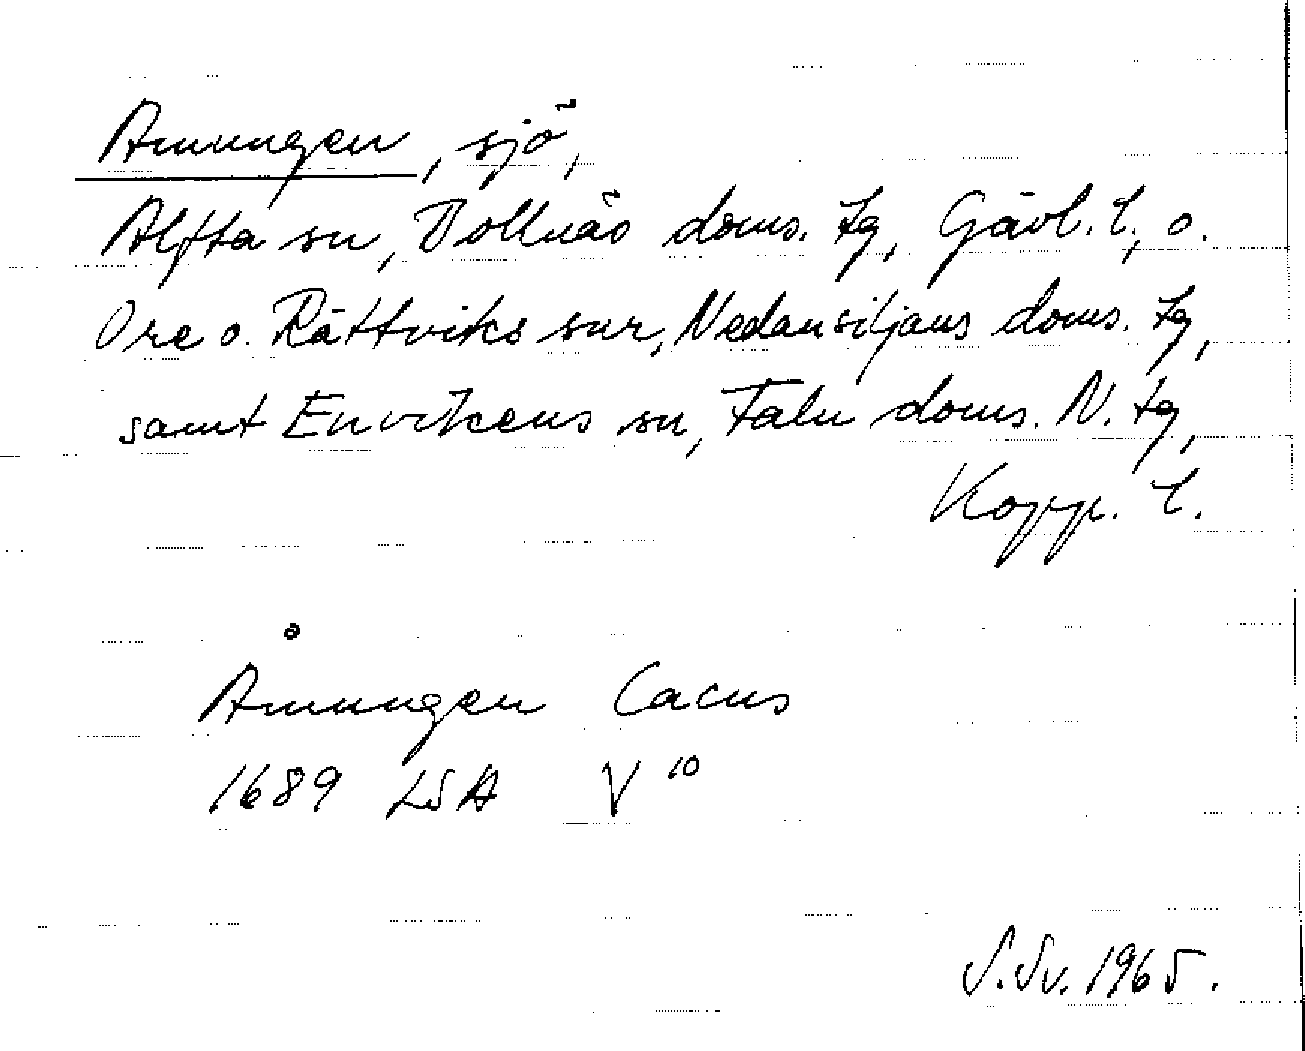 Amungen, sjö,
Alfta sn, Bollnäs doms. tg, Gävl. l., o.
Ore o. Rättviks snr, Nedansiljans doms. tg,
samt Envikens sn, Falu doms. N. tg,
Kopp. l.
Åmungen Lacus
1689 LSA V 10
S. Sv. 1965.